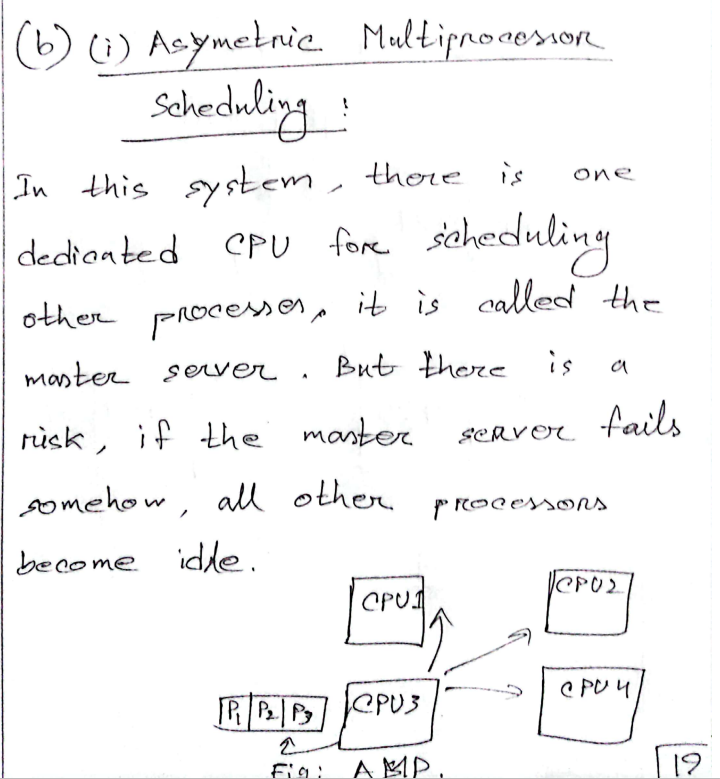 (b) (i) Asymetric Multiprocessor
Scheduling :
In this system, there is one
dedicated CPU fore scheduling
other processes, it is called the
master server. But there is a
risk, if the master server fails
somehow, all other processors
become idle.
CPU1 CPU2
P1 P2 P3 CPU3 CPU4
Fig: AMP.
19